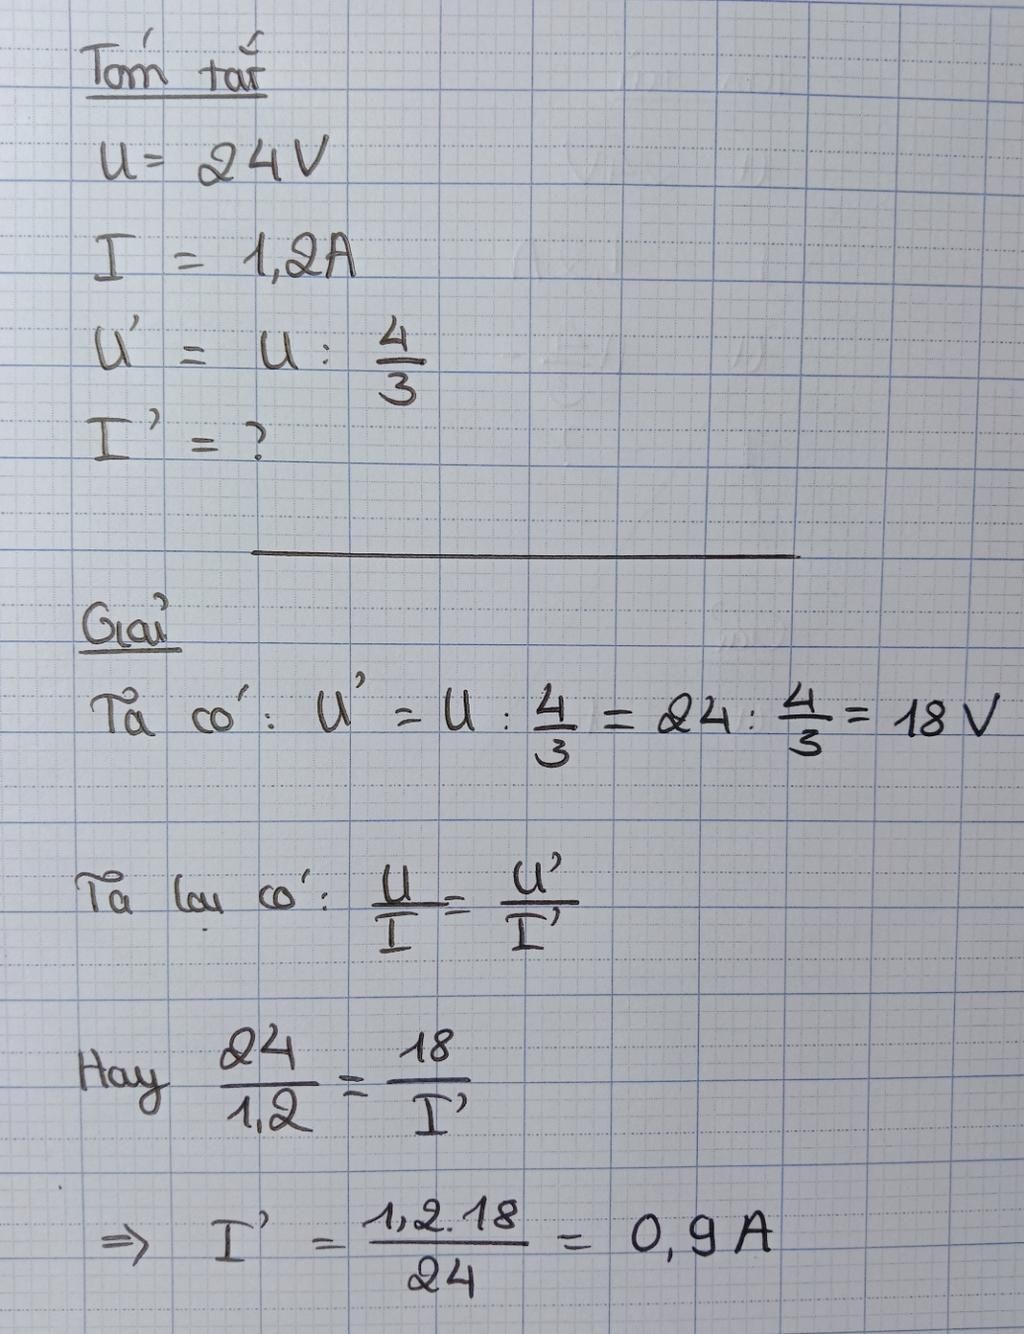 Tóm tắt
U = 24V
I = 1,2A
U' = U : 4/3
I' = ?
Giải
Ta có: U' = U : 4/3 = 24 : 4/3 = 18 V
Ta lại có: U/I = U'/I'
Hay 24/1,2 = 18/I'
⇒ I' = 1,2.18/24 = 0,9 A